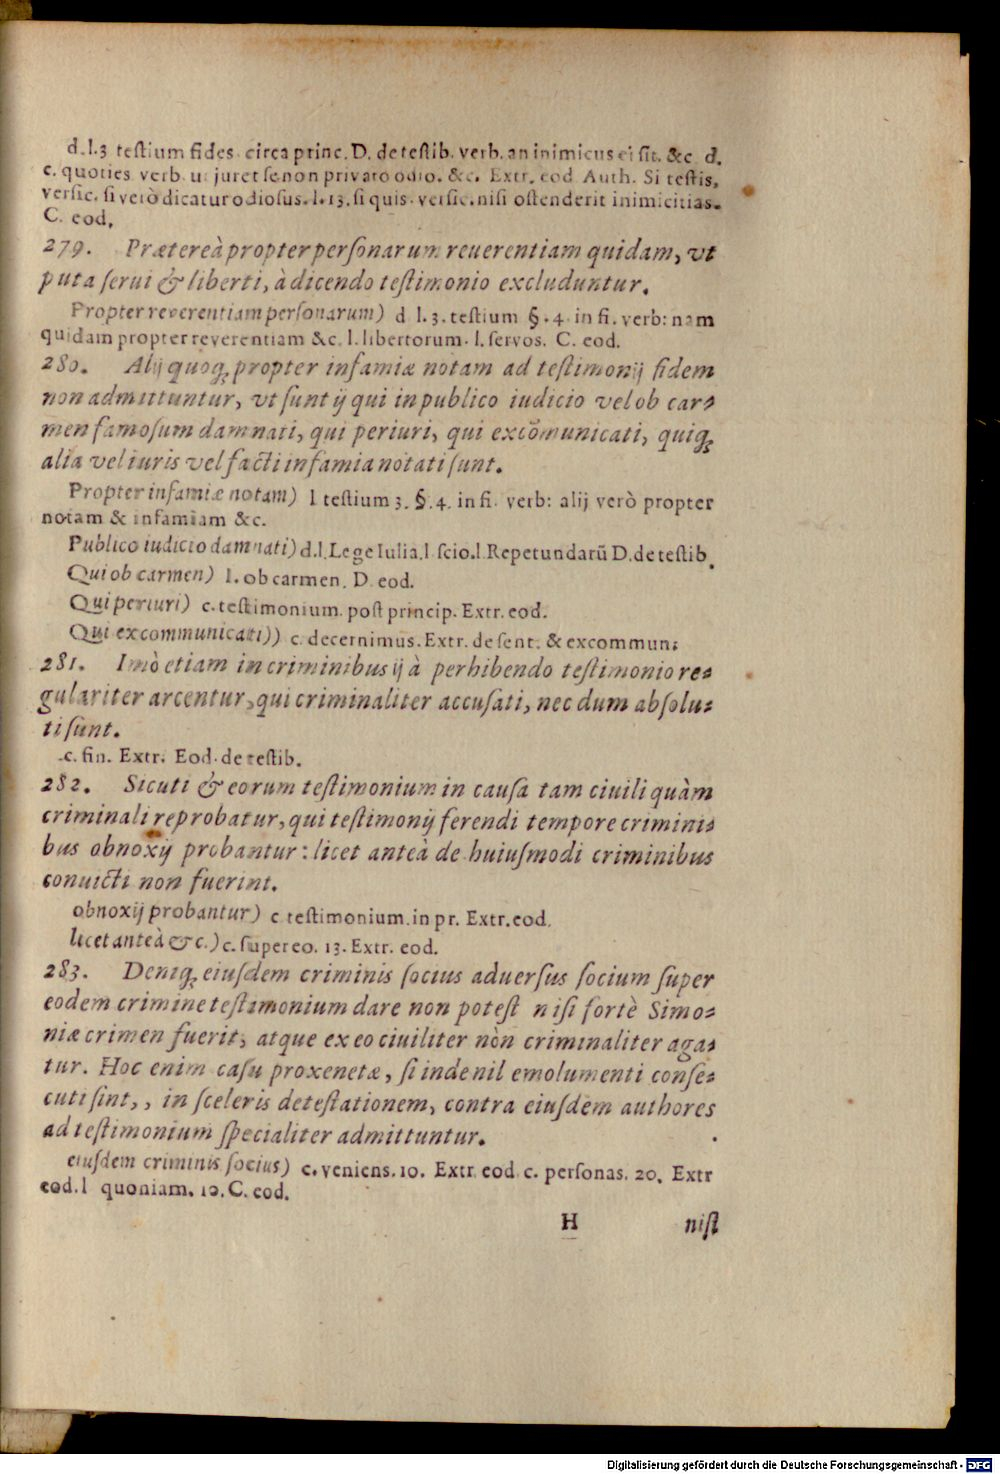 d. l. 3 teſtium fides. circa princ. D. de teſtib. verb. an inimicus ei ſit. &c. d.
c. quoties verb. ut juret ſe non privato odio. &c. Extr. eod Auth. Si teſtis,
verſic. ſi verò dicatur odioſus. l. 13. ſi quis. verſic. niſi oſtenderit inimicitias.
C. eod.
279. Prætereà propter perſonarum reuerentiam quidam, vt
puta ſerui & liberti, à dicendo teſtimonio excluduntur.
Propter reverentiam perſonarum) d l. 3. teſtium §. 4. in fi. verb: nam
quidam propter reverentiam &c. l. libertorum. l. ſervos. C. eod.
280. Alij quoq; propter infamiæ notam ad teſtimonij fidem
non admittuntur, vt ſunt ij qui in publico iudicio vel ob car⸗
men famoſum damnati, qui periuri, qui excõmunicati, quiq;
alia vel iuris vel facti infamia notati ſunt.
Propter infamiæ notam) l teſtium 3. §. 4. in fi. verb: alij verò propter
notam & infamiam &c.
Publico iudicio damnati) d. l. Lege Iulia. l ſcio. l. Repetundarũ D. de teſtib.
Qui ob carmen) l. ob carmen. D. eod.
Qui periuri) c. teſtimonium. poſt princip. Extr. eod.
Qui excommunicati)) c. decernimus. Extr. de ſent. & excommun:
281. Imò etiam in criminibus ij à perhibendo teſtimonio re⸗
gulariter arcentur, qui criminaliter accuſati, nec dum abſolu⸗
ti ſunt.
c. fin. Extr. Eod. de teſtib.
282. Sicuti & eorum teſtimonium in cauſa tam ciuili quàm
criminali reprobatur, qui teſtimonij ferendi tempore crimini⸗
bus obnoxij probantur: licet anteà de huiuſmodi criminibus
conuicti non fuerint.
obnoxij probantur) c teſtimonium. in pr. Extr. eod.
licet anteà &c.) c. ſuper eo. 13. Extr. eod.
283. Deniq; eiuſdem criminis ſocius aduerſus ſocium ſuper
eodem crimine teſtimonium dare non poteſt niſi fortè Simo⸗
niæ crimen fuerit, atque ex eo ciuiliter nòn criminaliter aga⸗
tur. Hoc enim caſu proxenetæ, ſi inde nil emolumenti conſe⸗
cuti ſint,, in ſceleris deteſtationem, contra eiuſdem authores
ad teſtimonium ſpecialiter admittuntur.
eiuſdem criminis ſocius) c. veniens. 10. Extr. eod. c. perſonas. 20. Extr
eod. l quoniam. 10. C. eod.
H niſi
Digitalisierung gefördert durch die Deutsche Forschungsgemeinschaft - DFG